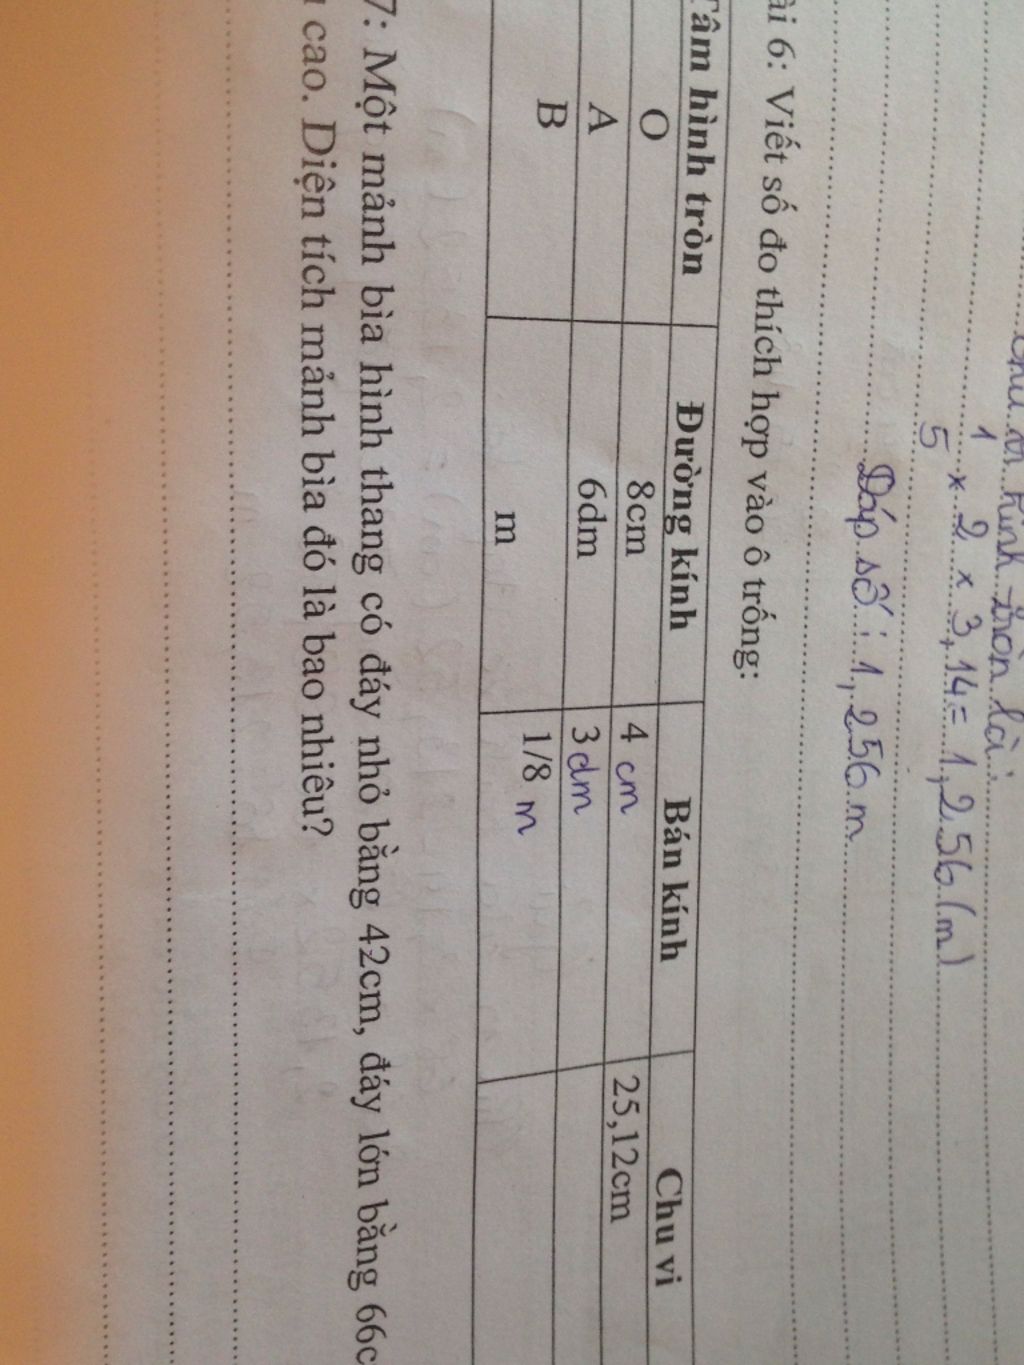 hình tròn là:
1
5 × 2 × 3,14 = 1,256 (m)
Đáp số: 1,256 m
ài 6: Viết số đo thích hợp vào ô trống:
Tâm hình tròn Đường kính Bán kính Chu vi
O 8cm 4 cm 25,12cm
A 6dm 3 dm
B m 1/8 m
7: Một mảnh bìa hình thang có đáy nhỏ bằng 42cm, đáy lớn bằng 66c
cao. Diện tích mảnh bìa đó là bao nhiêu?